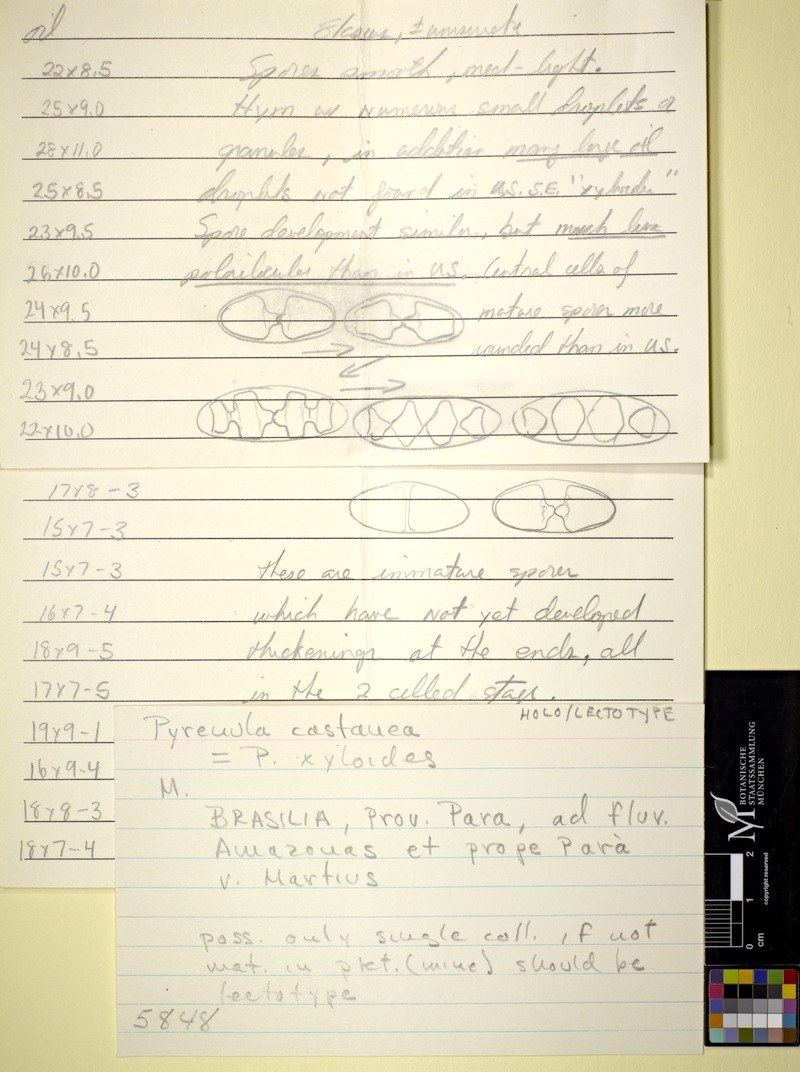 oil ±
22x8.5 Spores smooth, med-light.
25x9.0 Hym w numerous small droplets or
28x11.0 granules, in addition many large oil
25x8.5 droplets not found in U.S. S.E. "xyloides"
23x9.5 Spore development similar, but much less
26x10.0 than in US. Central cells of
24x9.5 mature spores more
24x8.5 rounded than in US.
23x9.0
22x10.0
17x8-3
15x7-3
15x7-3 these are immature spores
16x7-4 which have not yet developed
18x9-5 thickenings at the ends, all
17x7-5 in the 2 celled stage.
19x9-1
16x9-4
18x8-3
18x7-4
HOLO/LECTOTYPE
Pyrenula castanea
= P. xyloides
M.
BRASILIA, Prov. Para, ad fluv.
Amazonas et prope Parà
v. Martius
poss. only single coll. if not
mat. in pkt. (mine) should be
lectotype
5848
M
BOTANISCHE
STAATSSAMMLUNG
MÜNCHEN
copyright reserved
0 1 2
cm